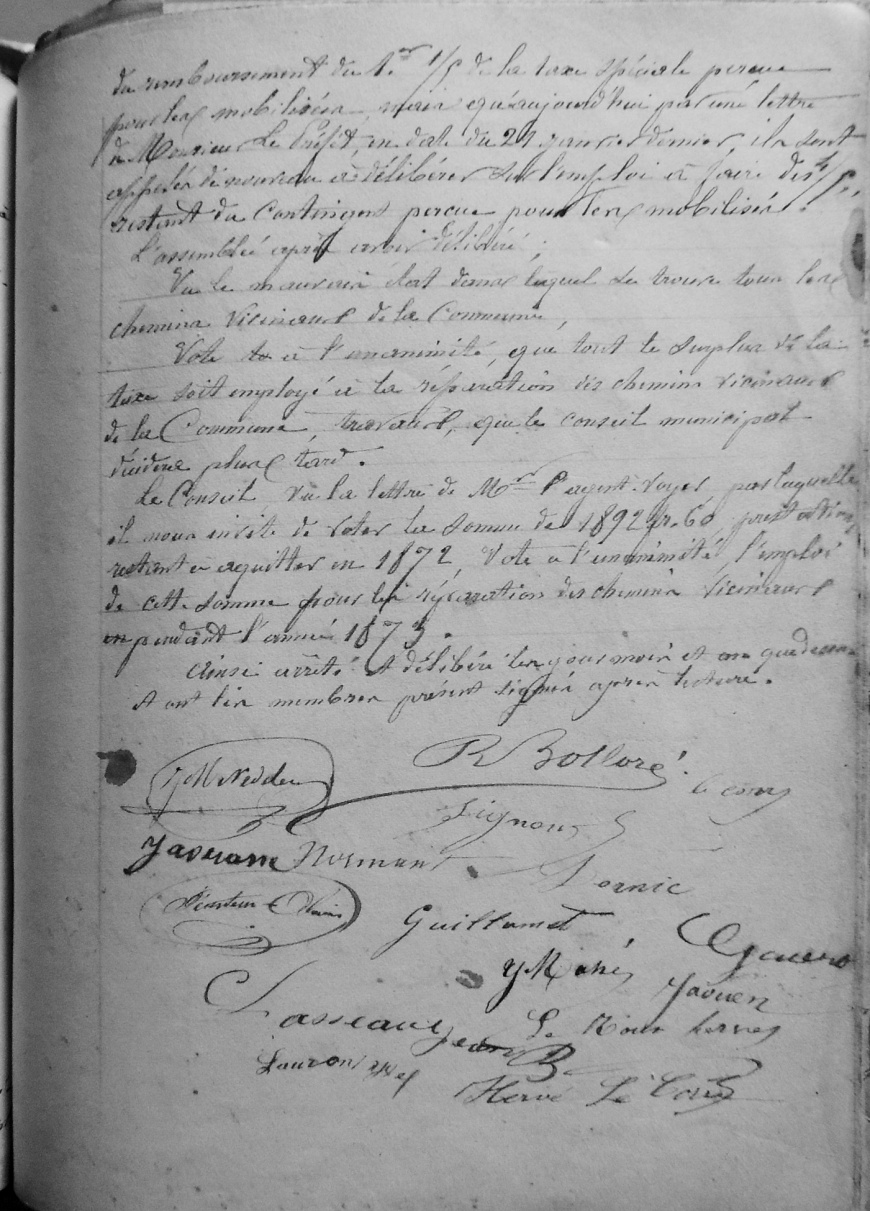 du remboursement du 1er 1/5 de la taxe spéciale perçue
pour les mobilisés, mais qu'aujourd'hui par une lettre
de Monsieur Le Préfet, en date du 29 janvier dernier, ils sont
appelés de nouveau à délibérer sur l'emploi à faire des 4/5
restant du Contingent perçue pour les mobilisés.
L'assemblée après avoir délibéré;
Vu le mauvais état dans lequel se trouve tous les
chemins Vicinaux de la Commune,
Vote à l'unanimité, que tout le surplus de la
taxe soit employé à la réparation des chemins vicinaux
de la Commune, travaux, que le conseil municipal
décidera plus tard.
Le Conseil Vu la lettre de Mr l'agent-Voyer, par laquelle
il nous invite de voter la somme de 1892 fr. 60, prestations
restant à aquitter en 1872, Vote à l'unanimité, l'emploi
de cette somme pour la réparation des chemins Vicinaux
pendant l'année 1873.
Ainsi arrêté et délibéré les jour mois et an que dessus
et ont les membres présent signés après lecture.
R Bolloré
Normant
Dornic
Guillamet
Y Mahé
Yaouen
Lasseau
Le Roux herve
Hervé Le Corre